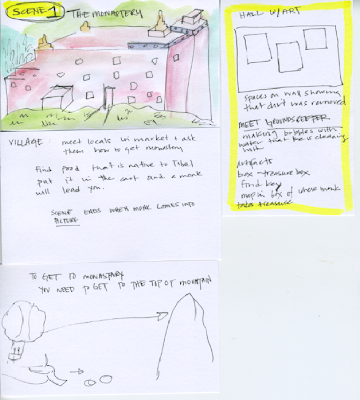 SCENE 1 - THE MONASTERY
VILLAGE meet locals in market & ask
them how to get monastery
find food that is native to Tibet
put it in the cart and a monk
will lead you.
SCENE ENDS WHEN MONK COMES INTO
PICTURE
TO GET TO MONASTERY
YOU NEED TO GET TO THE TOP OF MOUNTAIN
HALL W/ART
spaces on wall showing
that art was removed
MEET GROUNDSKEEPER
making bubbles with
water that he is cleaning
with
artifacts
box - treasure box
find key
map in box of where monk